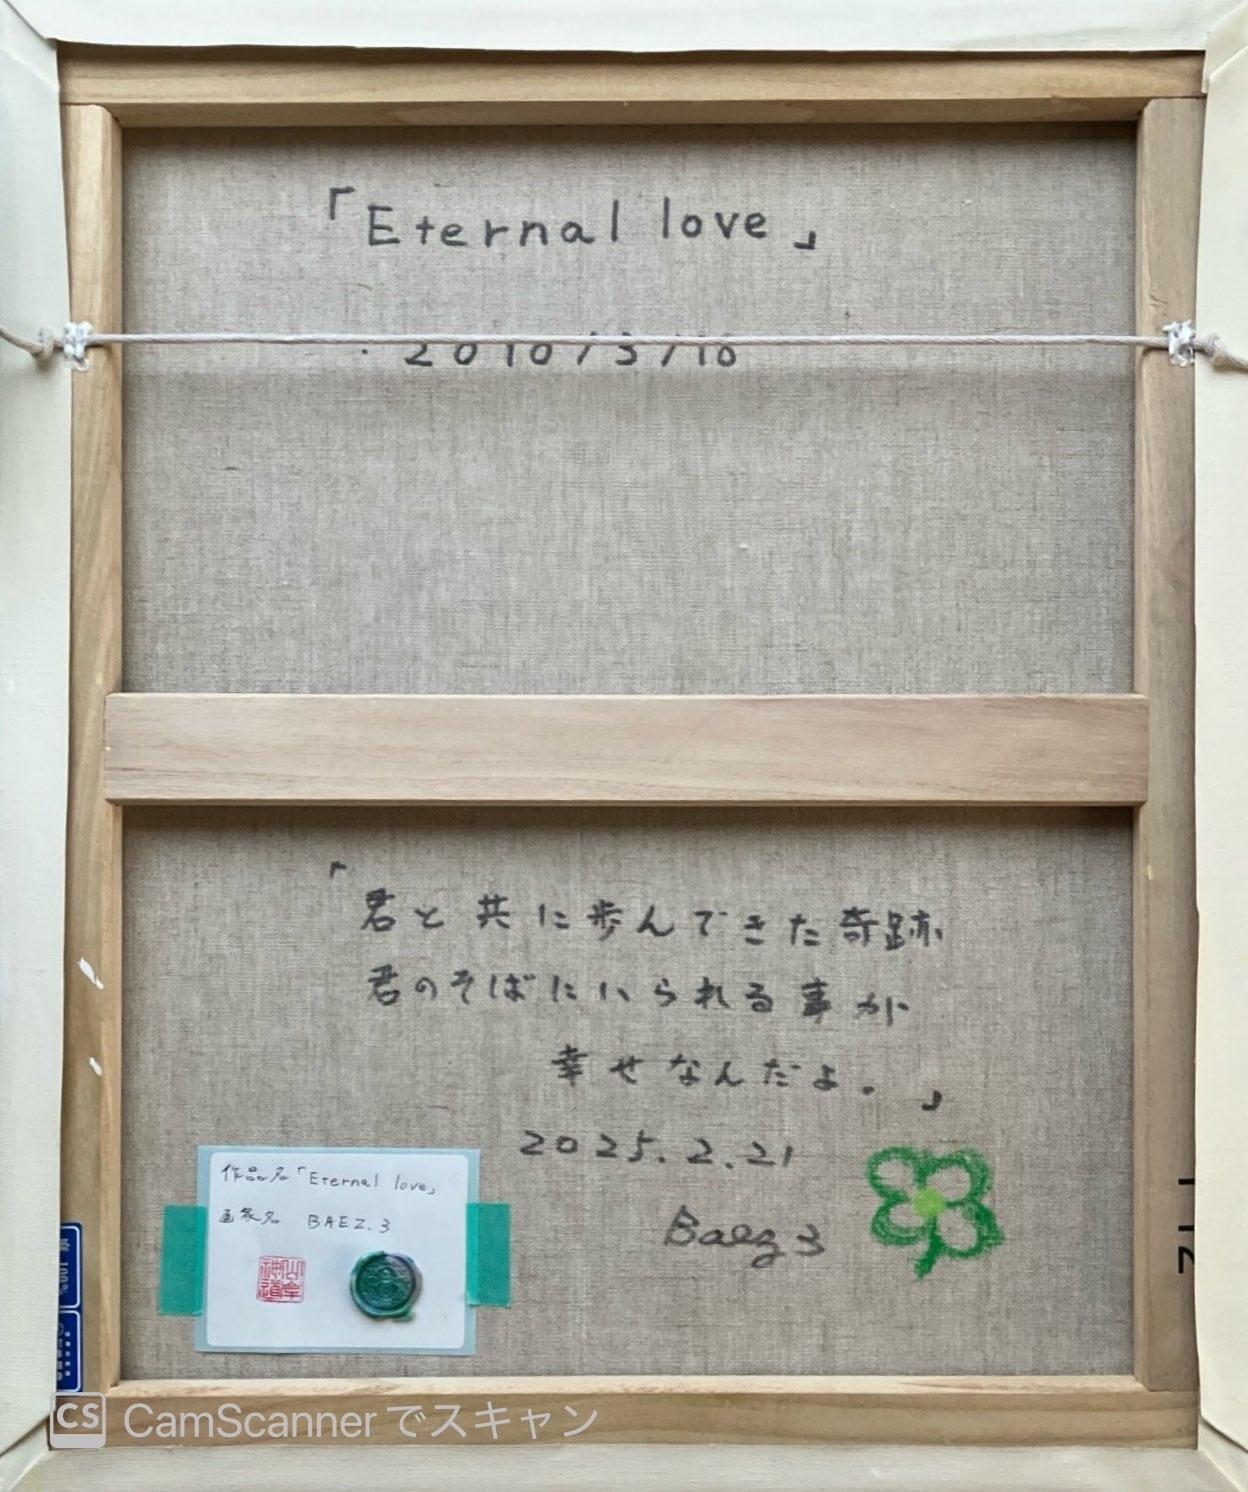 「Eternal love」
2010/3/10
「君と共に歩んできた奇跡
君のそばにいられる事が
幸せなんだよ。」
2025.2.21
Baez 3
作品名「Eternal love」
画家名 BAEZ.3
CS CamScannerでスキャン